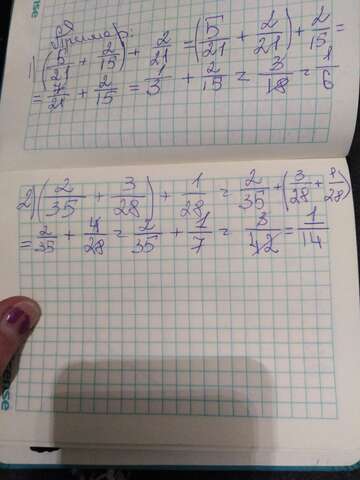 Пример:
1) (5/21 + 2/15) + 2/21 = (5/21 + 2/21) + 2/15 =
= 7/21 + 2/15 = 1/3 + 2/15 = 3/18 = 1/6
2) (2/35 + 3/28) + 1/28 = 2/35 + (3/28 + 1/28)
= 2/35 + 4/28 = 2/35 + 1/7 = 3/42 = 1/14